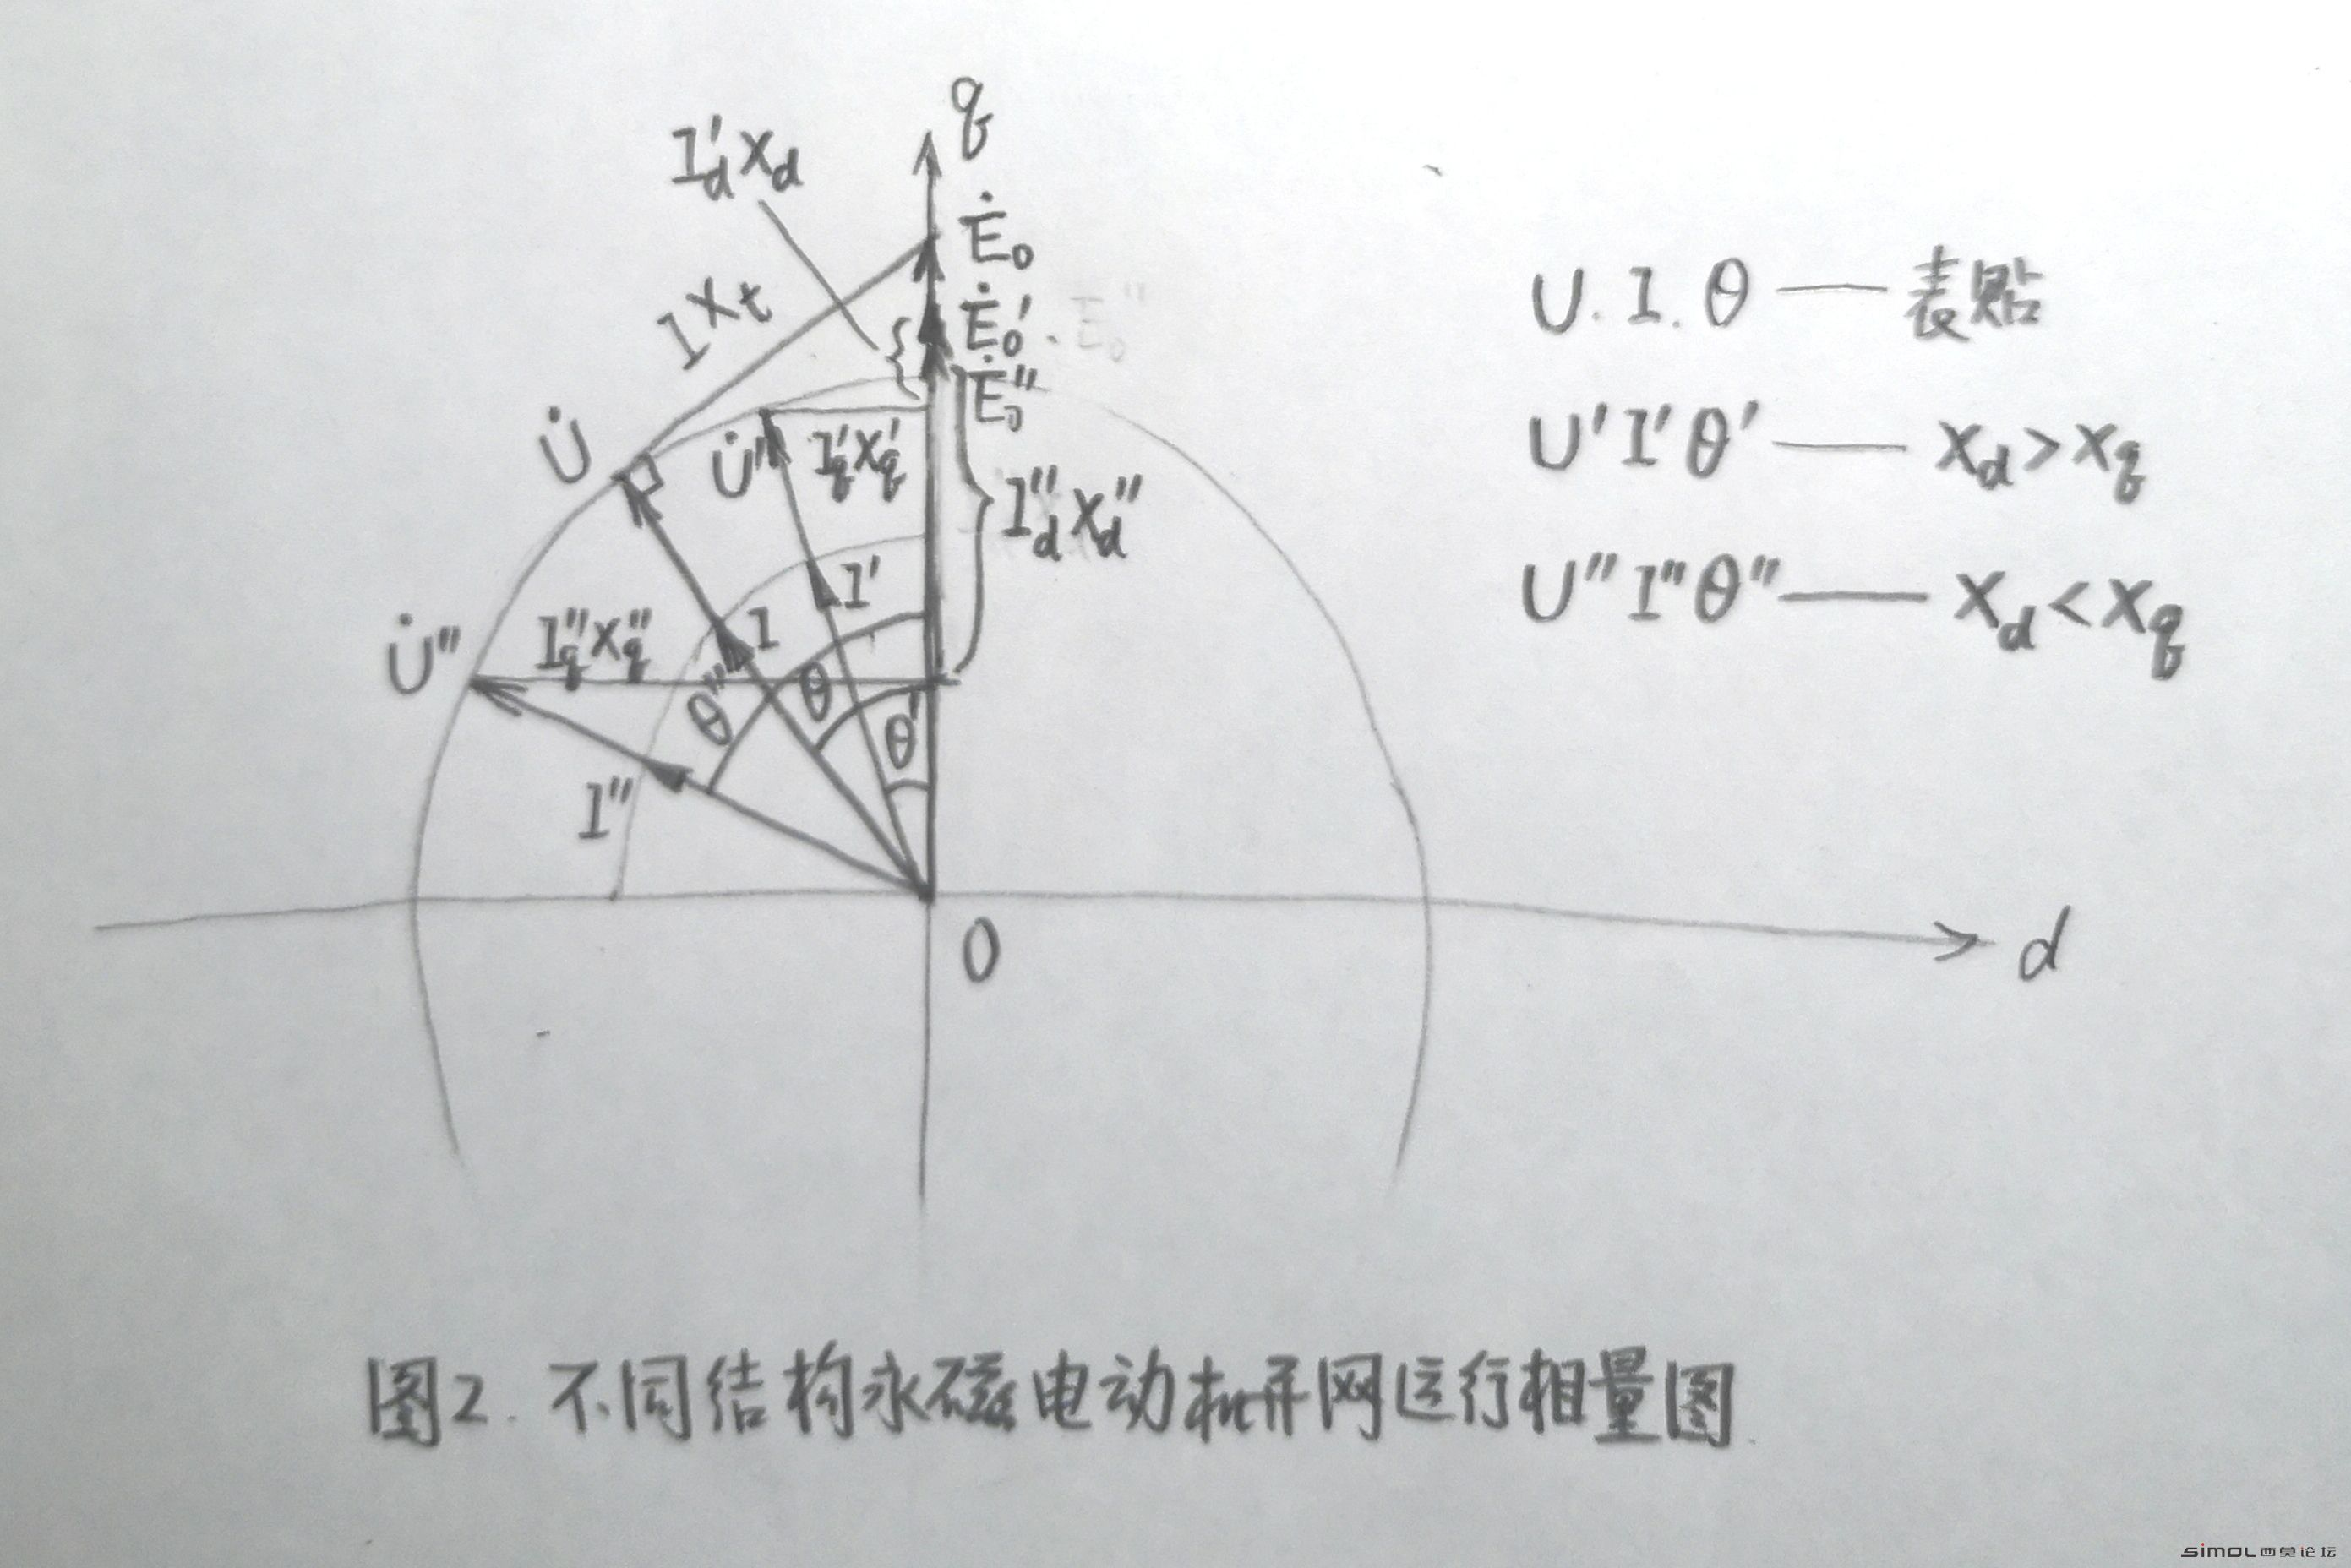 q
I'dXd
Ė₀
IXt
Ė₀'
Ė₀''
U̇
U̇''
I'qX'q
I''dX''d
I'
I
U̇''
I''qX''q
θ''
θ
θ'
I''
0
d
U.I.θ——表贴
U'I'θ'——Xd>Xq
U''I''θ''——Xd<Xq
图2.不同结构永磁电动机并网运行相量图
simol西莫论坛